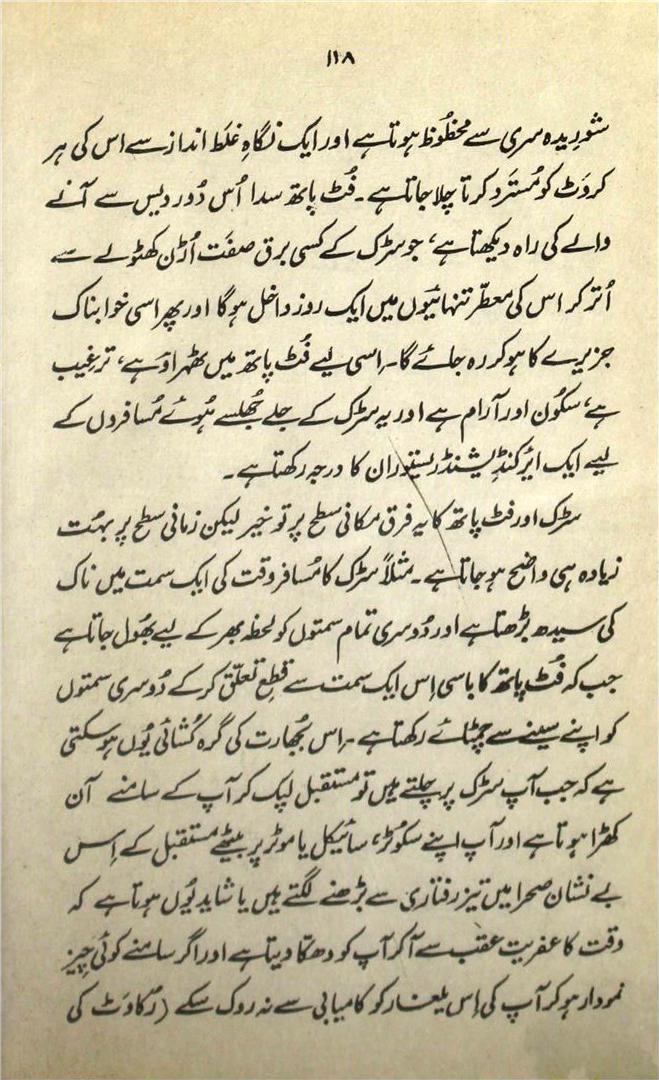 ۱۱۸
شوریدہ سری سے محظُوظ ہوتا ہے اور ایک نگاہِ غلَط انداز سے اس کی ہر
کروَٹ کو مُسترَد کرتا چلا جاتا ہے۔ فُٹ پاتھ سدا اُس دُور دیس سے آنے
والے کی راہ دیکھتا ہے، جو سڑک کے کسی برق صفَت اُڑن کھٹولے سے
اُتر کر اس کی معطّر تنہائیوں میں ایک روز داخل ہوگا اور پھر اسی خوابناک
جزیرے کا ہو کر رہ جائے گا۔ اِسی لیے فُٹ پاتھ میں ٹھہراؤ ہے، ترغیب
ہے، سکُون اور آرام ہے اور یہ سڑک کے جلے جُھلسے ہُوئے مُسافروں کے
لیے ایک ایئرکنڈِیشنڈ ریستوران کا درجہ رکھتا ہے۔
سڑک اور فٹ پاتھ کا یہ فرق مکانی سطح پر تو خیر لیکن زمانی سطح پر بہُت
زیادہ ہی واضح ہو جاتا ہے۔ مثلاً سڑک کا مُسافر وقت کی ایک سمت میں ناک
کی سیدھ بڑھتا ہے اور دُوسری تمام سمتوں کو لحظہ بھر کے لیے بھُول جاتا ہے
جب کہ فُٹ پاتھ کا باسی اِس ایک سمت سے قطعِ تعلّق کر کے دُوسری سمتوں
کو اپنے سینے سے چمٹائے رکھتا ہے۔ اِس بُجھارت کی گرہ کُشائی یُوں ہو سکتی
ہے کہ جب آپ سڑک پر چلتے ہیں تو مستقبل لپک کر آپ کے سامنے آن
کھڑا ہوتا ہے اور آپ اپنے سکوٹر، سائیکل یا موٹر پر بیٹھے مستقبل کے اِس
بے نشان صحرا میں تیز رفتاری سے بڑھنے لگتے ہیں یا شاید یُوں ہوتا ہے کہ
وقت کا عفریت عقب سے آ کر آپ کو دھکّا دیتا ہے اور اگر سامنے کوئی چیز
نمودار ہو کر آپ کی اِس یلغار کو کامیابی سے نہ روک سکے (رُکاوَٹ کی